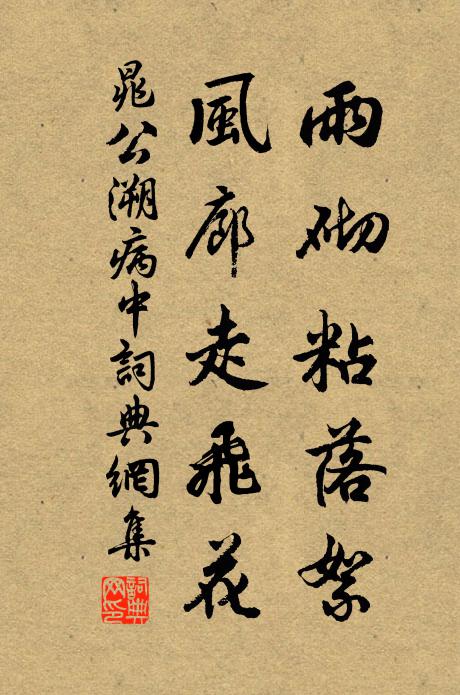 雨砌粘落絮
風廊走飛花
晁公溯病中詞典網集
詞典網印